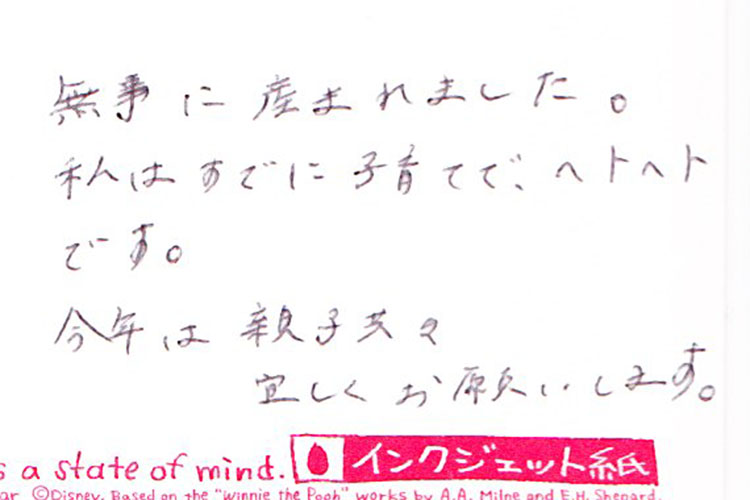 無事に産まれました。
私はすでに子育てで、ヘトヘト
です。
今年は親子共々
宜しくお願いします。
s a state of mind. インクジェット紙
ar ©Disney. Based on the "Winnie the Pooh" works by A.A. Milne and E.H. Shepard.